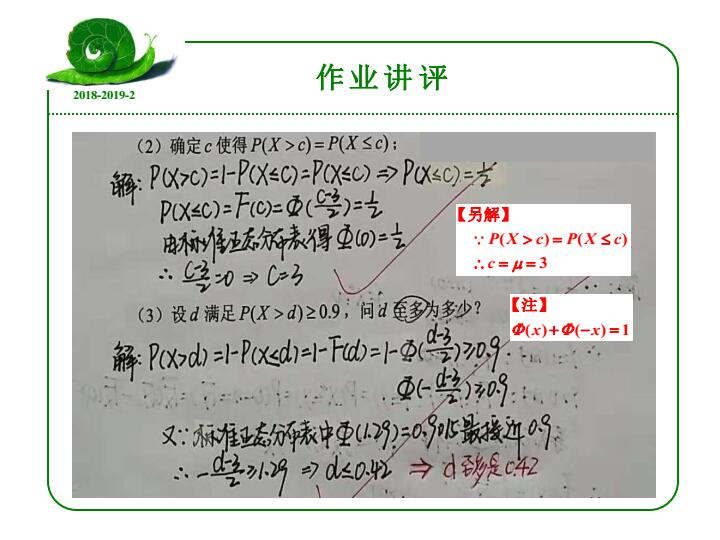 作业讲评
2018-2019-2
(2) 确定 c 使得 P(X > c) = P(X ≤ c);
解: P(X>c)=1-P(X≤c)=P(X≤c) => P(X≤c)=1/2
P(X≤c)=F(c)=Φ(c-3/2)=1/2
由标准正态分布表得 Φ(0)=1/2
∴ c-3/2=0 => c=3
【另解】
∵ P(X > c) = P(X ≤ c)
∴ c = μ = 3
(3) 设 d 满足 P(X > d) ≥ 0.9, 问 d 至多为多少?
【注】
Φ(x)+Φ(−x)=1
解: P(X>d)=1-P(X≤d)=1-F(d)=1-Φ(d-3/2)≥0.9.
Φ(-d-3/2)≥0.9
又∵标准正态分布表中Φ(1.29)=0.9015最接近0.9.
∴ -d-3/2≥1.29 => d≤0.42 => d至多是0.42